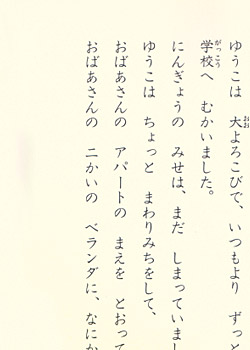 ゆうこは 大よろこびで、いつもより ずっと
学校へ むかいました。
にんぎょうの みせは、まだ しまっていまし
ゆうこは ちょっと まわりみちをして、
おばあさんの アパートの まえを とおって
おばあさんの 二かいの ベランダに、なにか